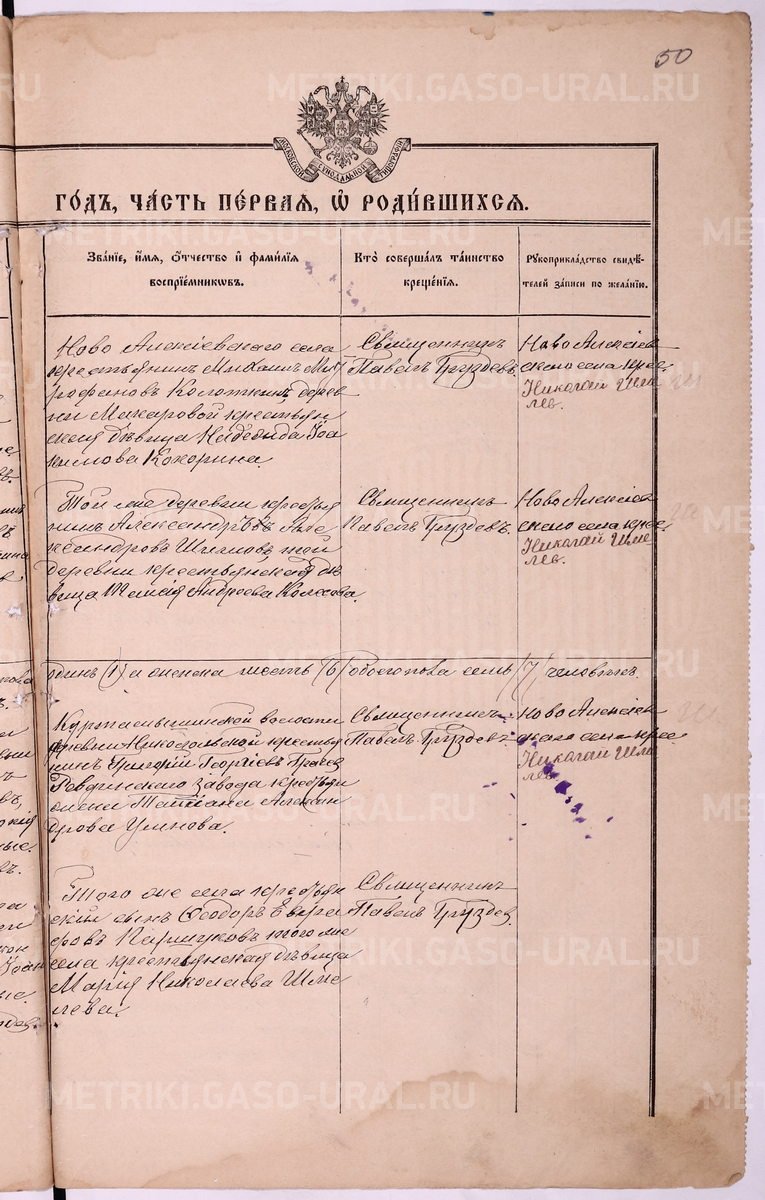 50
МОСКОВСКОЙ СѴНОДАЛЬНОЙ ТИПОГРАФІИ
ГО́ДЪ, ЧА́СТЬ ПЕ́РВАЯ, Ѡ҆ РОДИ́ВШИХСЯ.
Зва́нїе, и҆́мя, ѻ҆́тчество и҆ фами́лїя
воспрїе́мниковъ.
Кто̀ соверша́лъ та́инство
креще́нїя.
Рꙋкоприкла́дство свидѣ́-
телей за́писи по жела́нїю.
Ново Алексіевскаго села
крестьянинъ Михаилъ Мит
рофановъ Колоткинъ, дерев
ни Макаровой крестьян
ская дѣвица Надежда Іоа
кимова Кокорина.
Священникъ
Павелъ Груздевъ
Ново Алексіев
скаго села крес.
Николай Шме
лев.
Той же деревни крестья
нинъ Александръ Але
ксандровъ той
деревни крестьянская дѣ
вица Андреева
Священникъ
Павелъ Груздевъ.
Ново Алексіев
скаго села крес.
Николай Шме
лев.
одинъ (1) а женска шесть (6) обоегопола семь (7) человѣкъ.
волости
деревни Никольской крестья
нинъ Григорій Георгіевъ
Ревдинскаго завода крестьян
жена Татіана Алексан
дрова Умнова.
Священникъ
Павелъ Груздевъ
Ново Алексіев
скаго села крес.
Николай Шме
лев.
Того же села крестьян
скій сынъ Ѳеодоръ
того же
села крестьянская дѣвица
Марія Николаева Шме
лева.
Священникъ
Павелъ Груздев.
METRIKI.GASO-URAL.RU